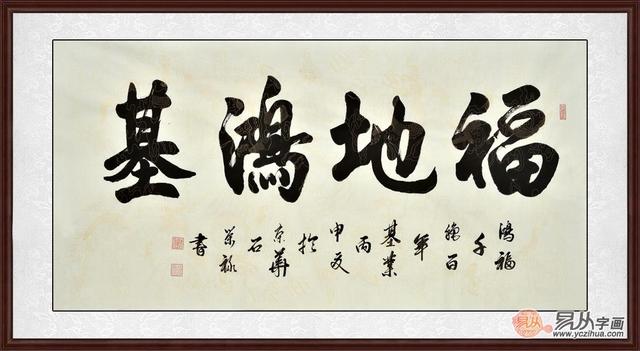 福地鴻基
鴻福
千
百
年
基業
丙
申夏
於
京華
石
榮祿
書
易从
易从字画
www.yczihua.com